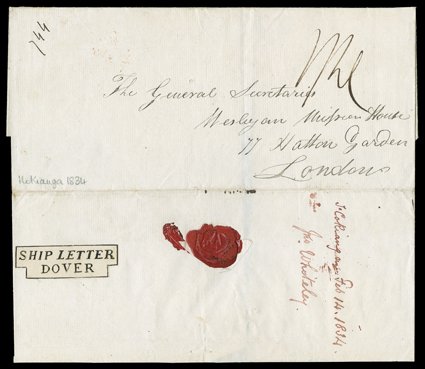 744
The General Secretaries
Wesleyan Mission House
77 Hatton Garden
London
Hokianga 1834
SHIP LETTER
DOVER
Hokianga Feb 14. 1834.
Jno Whiteley.